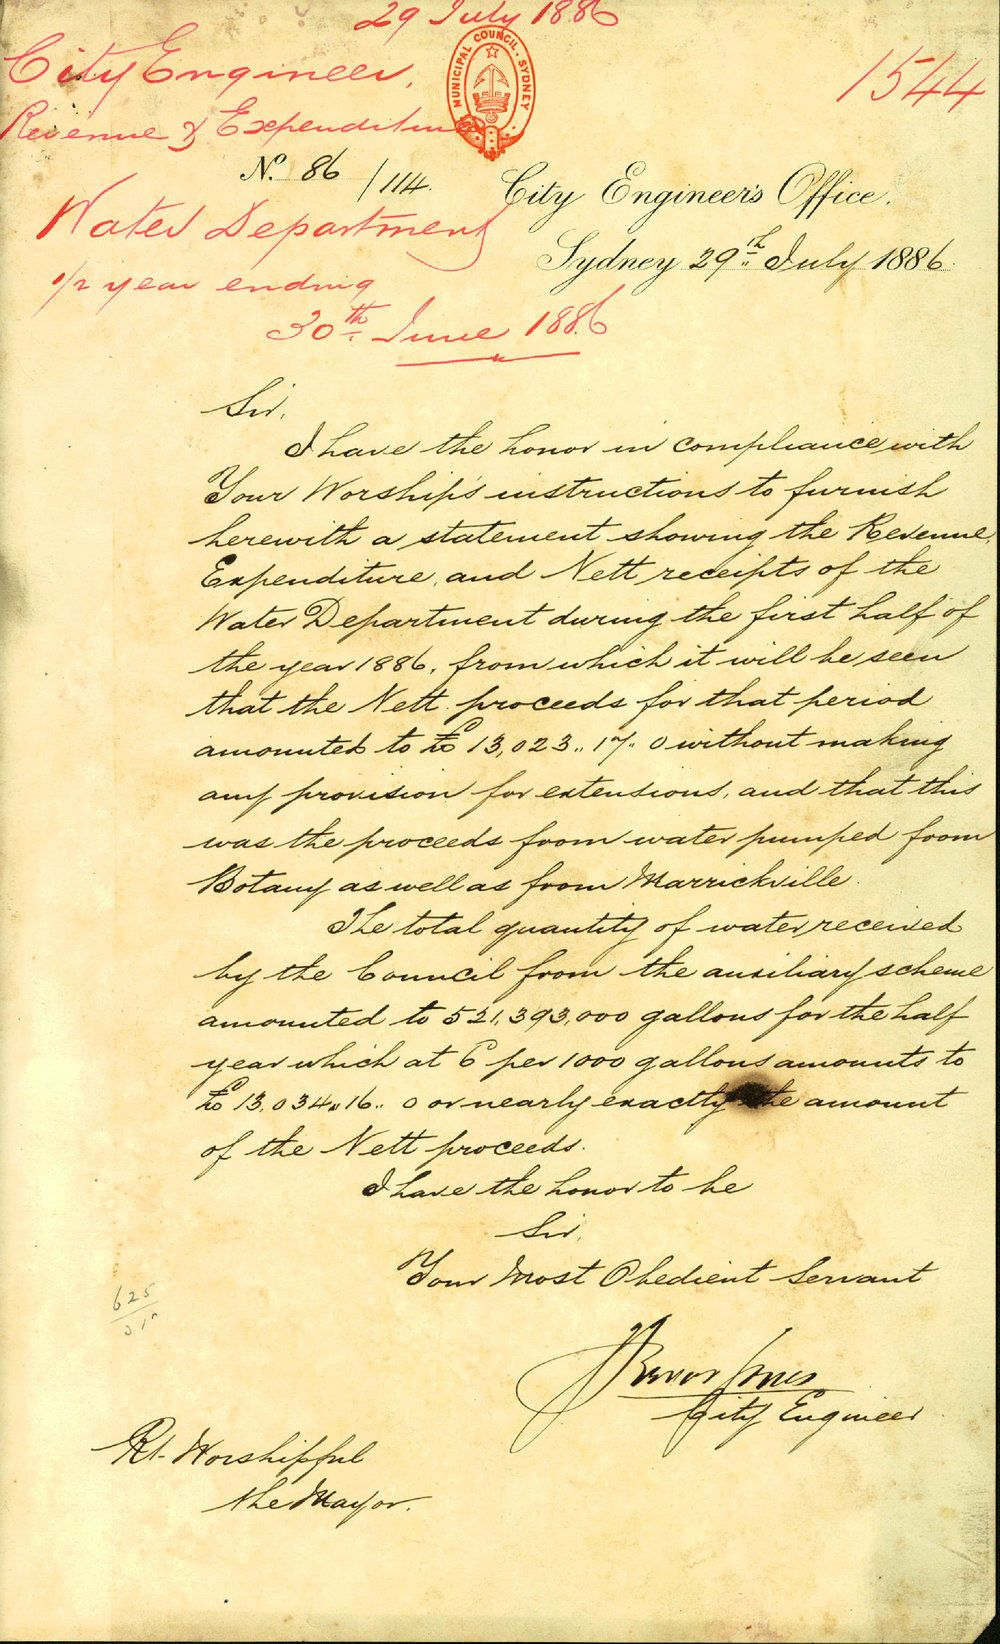 29 July 1886
City Engineer,
1544
Revenue & Expenditure
MUNICIPAL COUNCIL. SYDNEY
No. 86/114.
City Engineer's Office.
Water Department
Sydney 29th July 1886.
1/2 year ending
30th June 1886
Sir,
I have the honor in compliance with
Your Worship's instructions to furnish
herewith a statement showing the Revenue,
Expenditure, and Nett receipts of the
Water Department during the first half of
the year 1886, from which it will be seen
that the Nett proceeds for that period
amounted to £13,023..17..0 without making
any provision for extensions, and that this
was the proceeds from water pumped from
Botany as well as from Marrickville.
The total quantity of water received
by the Council from the auxiliary scheme
amounted to 521,393,000 gallons for the half
year which at 6d per 1000 gallons amounts to
£13,034..16..0 or nearly exactly the amount
of the Nett proceeds.
I have the honor to be
Sir,
Your Most Obedient Servant
Trevor Jones
City Engineer
625
Rt. Worshipful
the Mayor.